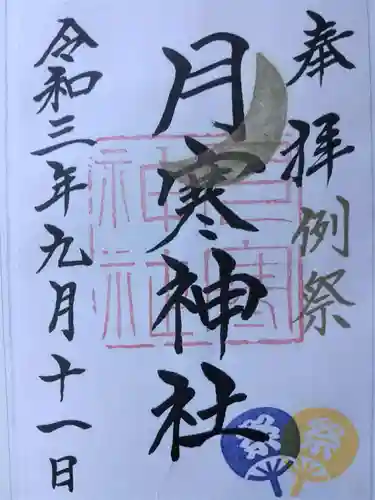 奉拝
例祭
月寒神社
令和三年九月十一日
月寒
神
社
祭
祭